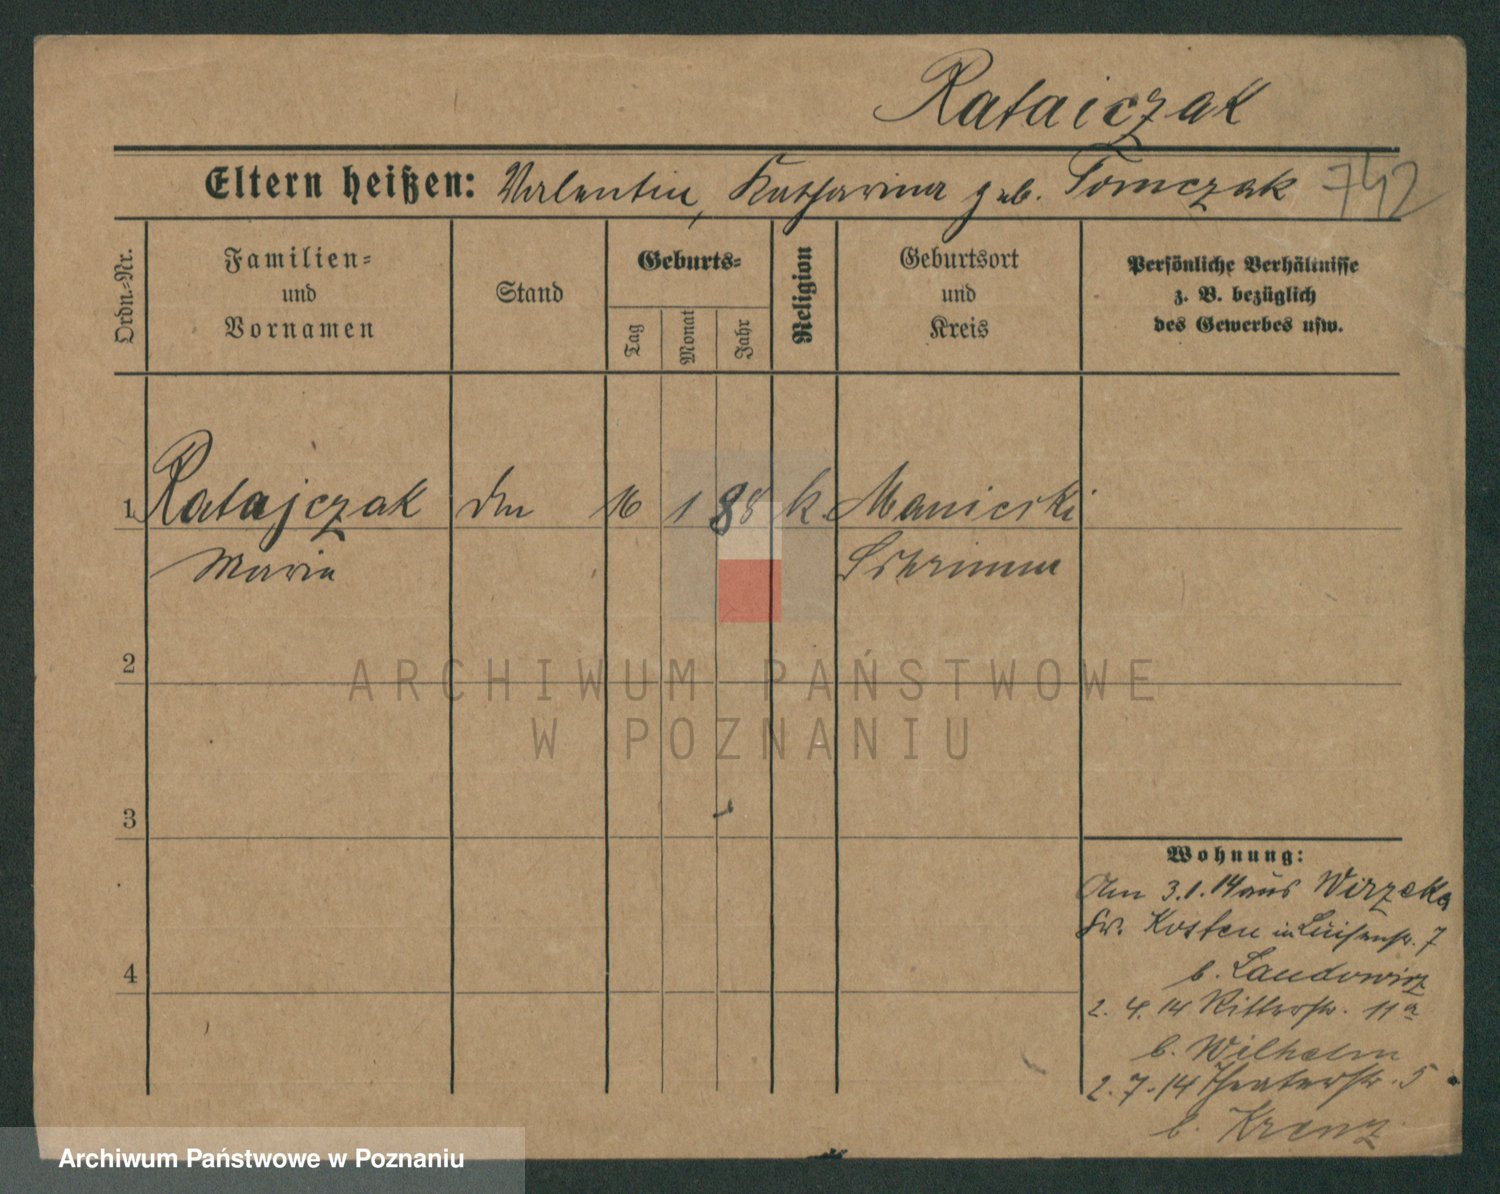 Rataiczak
Eltern heißen: Valentin, Katharina geb. Tomczak 742
Ordn.-Nr.
Familien-
und
Vornamen
Stand
Geburts-
Tag
Monat
Jahr
Religion
Geburtsort
und
Kreis
Persönliche Verhältnisse
z. B. bezüglich
des Gewerbes usw.
1 Ratajczak 16 1 88 k. Maniecki
Maria Schrimm
2
3
4
Wohnung:
Am 3.1.14 aus
Kr. Kosten in Luisenstr. 7
b. Landowicz
2.4.14 Ritterstr. 11a
b. Wilhelm
2.7.14 Theaterstr. 5
b. Krenz
ARCHIWUM PAŃSTWOWE
W POZNANIU
Archiwum Państwowe w Poznaniu